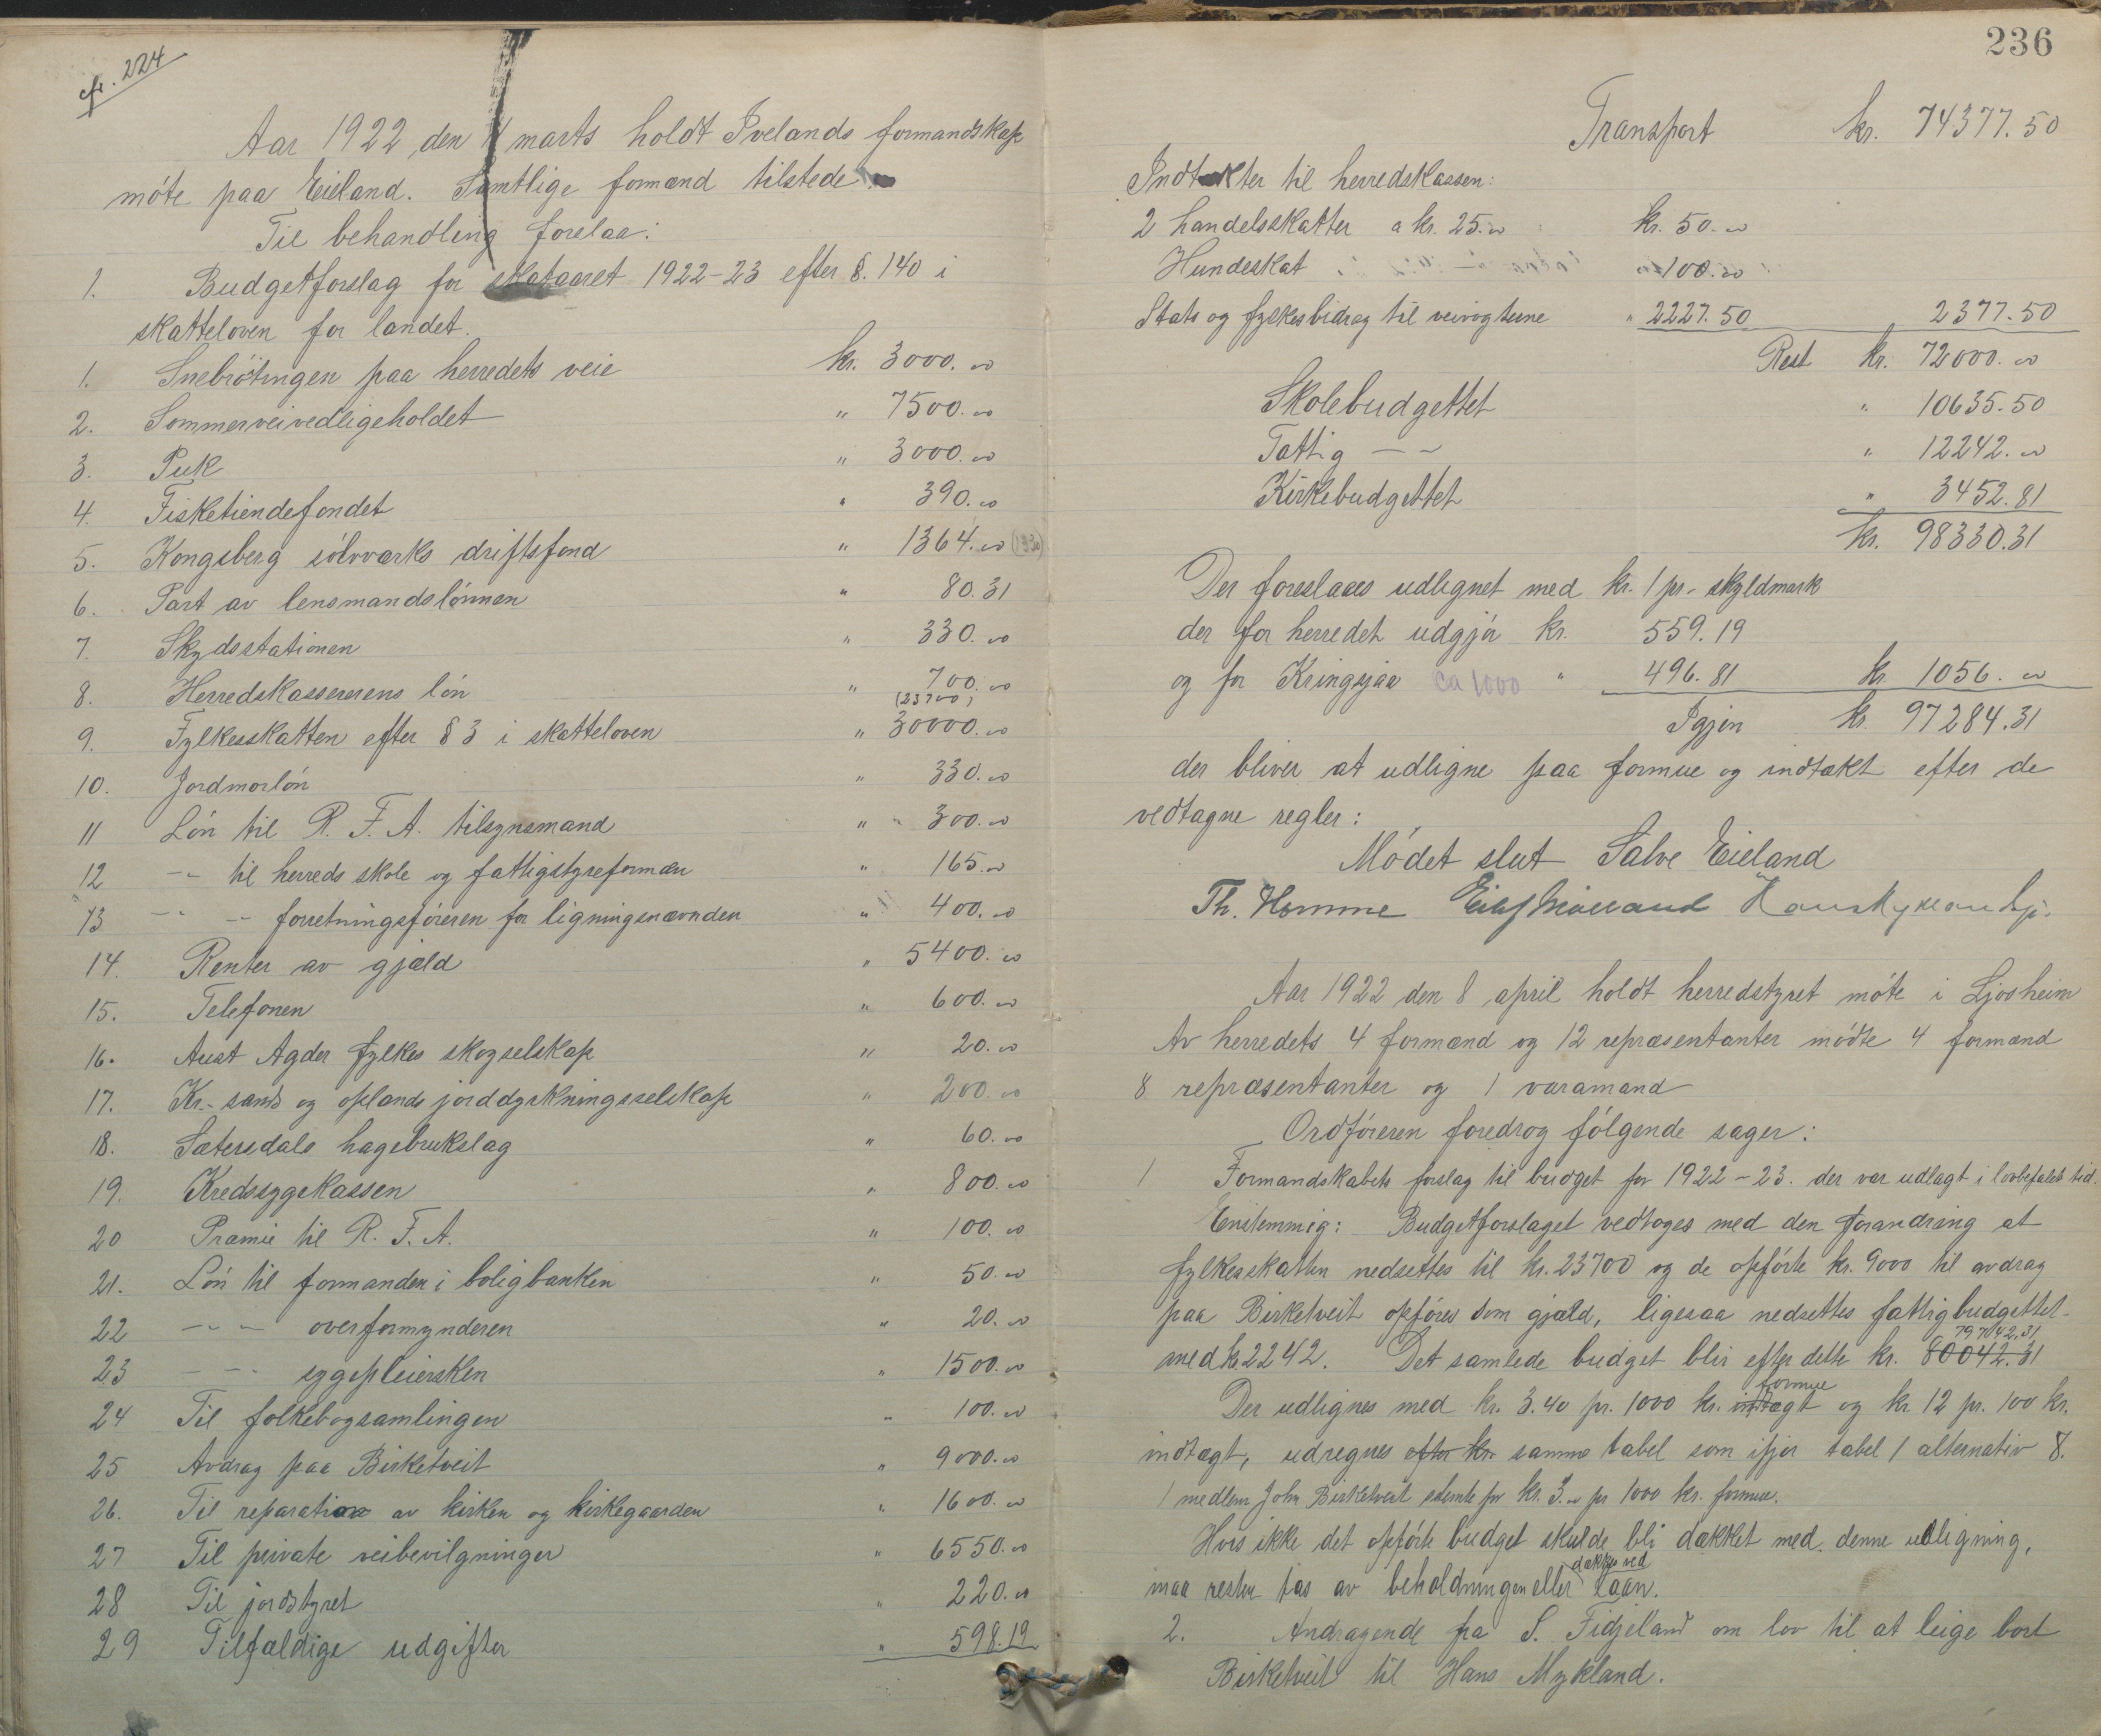 cfr. 224
Aar 1922 den 4 marts holdt Ivelands formandskap
møte paa Eieland. Samtlige formænd tilstede.
Til behandling forelaa:
1. Budgetforslag for skataaret 1922-23 efter §. 140 i
skatteloven for landet.
1. Snebrøtingen paa herredets veie kr. 3000.00
2. Sommerveivedligeholdet " 7500.00
3. Puk " 3000.00
4. Fisketiendefondet " 390.00
5. Kongsberg sølvværks driftsfond " 1364.00 (1330)
6. Part av lensmandslønnen " 80.31
7. Skydsstationen " 330.00
8. Herredskassererens løn " 700.00
(23700)
9. Fylkesskatten efter § 3 i skatteloven " 30000.00
10. Jordmorløn " 330.00
11 Løn til R. F. A. tilsynsmand " 300.00
12 -"- til herreds skole og fattigstyreformæn " 165.00
13 -"- -"- forretningsføreren for ligningsnævnden " 400.00
14. Renter av gjæld " 5400.00
15. Telefonen " 600.00
16. Aust Agder fylkes skogselskap " 20.00
17. Kr.-sands og oplands jorddyrkningsselskap " 200.00
18. Sætersdals hagebrukslag " 60.00
19. Kredssygekassen " 800.00
20 Præmie til R. F. A. " 100.00
21. Løn til formanden i boligbanken " 50.00
22 -"- overformynderen " 20.00
23 -"- sygepleiersken " 1500.00
24 Til folkebogsamlingen " 100.00
25 Avdrag paa Birketveit " 9000.00
26. Til reparation av kirken og kirkegaarden " 1600.00
27 Til private veibevilgninger " 6550.00
28 Til jordstyret " 220.00
29 Tilfældige udgifter " 598.19
236
Transport kr. 74377.50
Indtækter til herredskassen:
2 handelsskatter a kr. 25.00 kr. 50.00
Hundeskat " 100.00
Stats og fylkesbidrag til veivogterne " 2227.50 2377.50
Rest kr. 72000.00
Skolebudgettet " 10635.50
Fattig -"- " 12242.00
Kirkebudgettet " 3452.81
kr. 98330.31
Der foreslaaes udlignet med kr. 1 pr. skyldmark
der for herredet udgjør kr. 559.19
og for Kringsjaa ca 1000 " 496.81 kr 1056.00
Igjen kr. 97284.31
der bliver at udligne paa formue og indtækt efter de
vedtagne regler:
Mødet slut Salve Eieland
Th. Homme Eilef Mølland
Aar 1922 den 8 april holdt herredstyret møte i Ljosheim
Av herredets 4 formænd og 12 repræsentanter mødte 4 formænd
8 repræsentanter og 1 varamand
Ordføreren foredrog følgende sager:
1 Formandskabets forslag til budget for 1922-23. der var udlagt i lovbefalet tid.
Enstemmig: Budgetforslaget vedtoges med den forandring at
fylkesskatten nedsettes til kr. 23700 og de opførte kr. 9000 til avdrag
paa Birketveit opføres som gjæld, ligesaa nedsettes fattigbudgettet
79742,31
med kr 2242. Det samlede budget blir efter dette kr. 80042.31
formue
Der udlignes med kr. 3.40 pr. 1000 kr. indtægt og kr 12 pr. 100 kr.
indtægt, udregnes efter kr. samme tabel som ifjor tabel 1 alternativ 8.
1 medlem John Birketveit stemte for kr. 3.00 pr 1000 kr. formue.
Hvis ikke det opførte budget skulde bli dækket med denne udligning,
dækkes ved
maa resten tas av beholdningen eller laan.
2. Andragende fra S. Fidjeland om lov til at leige bort
Birketveit til Hans Mykland.